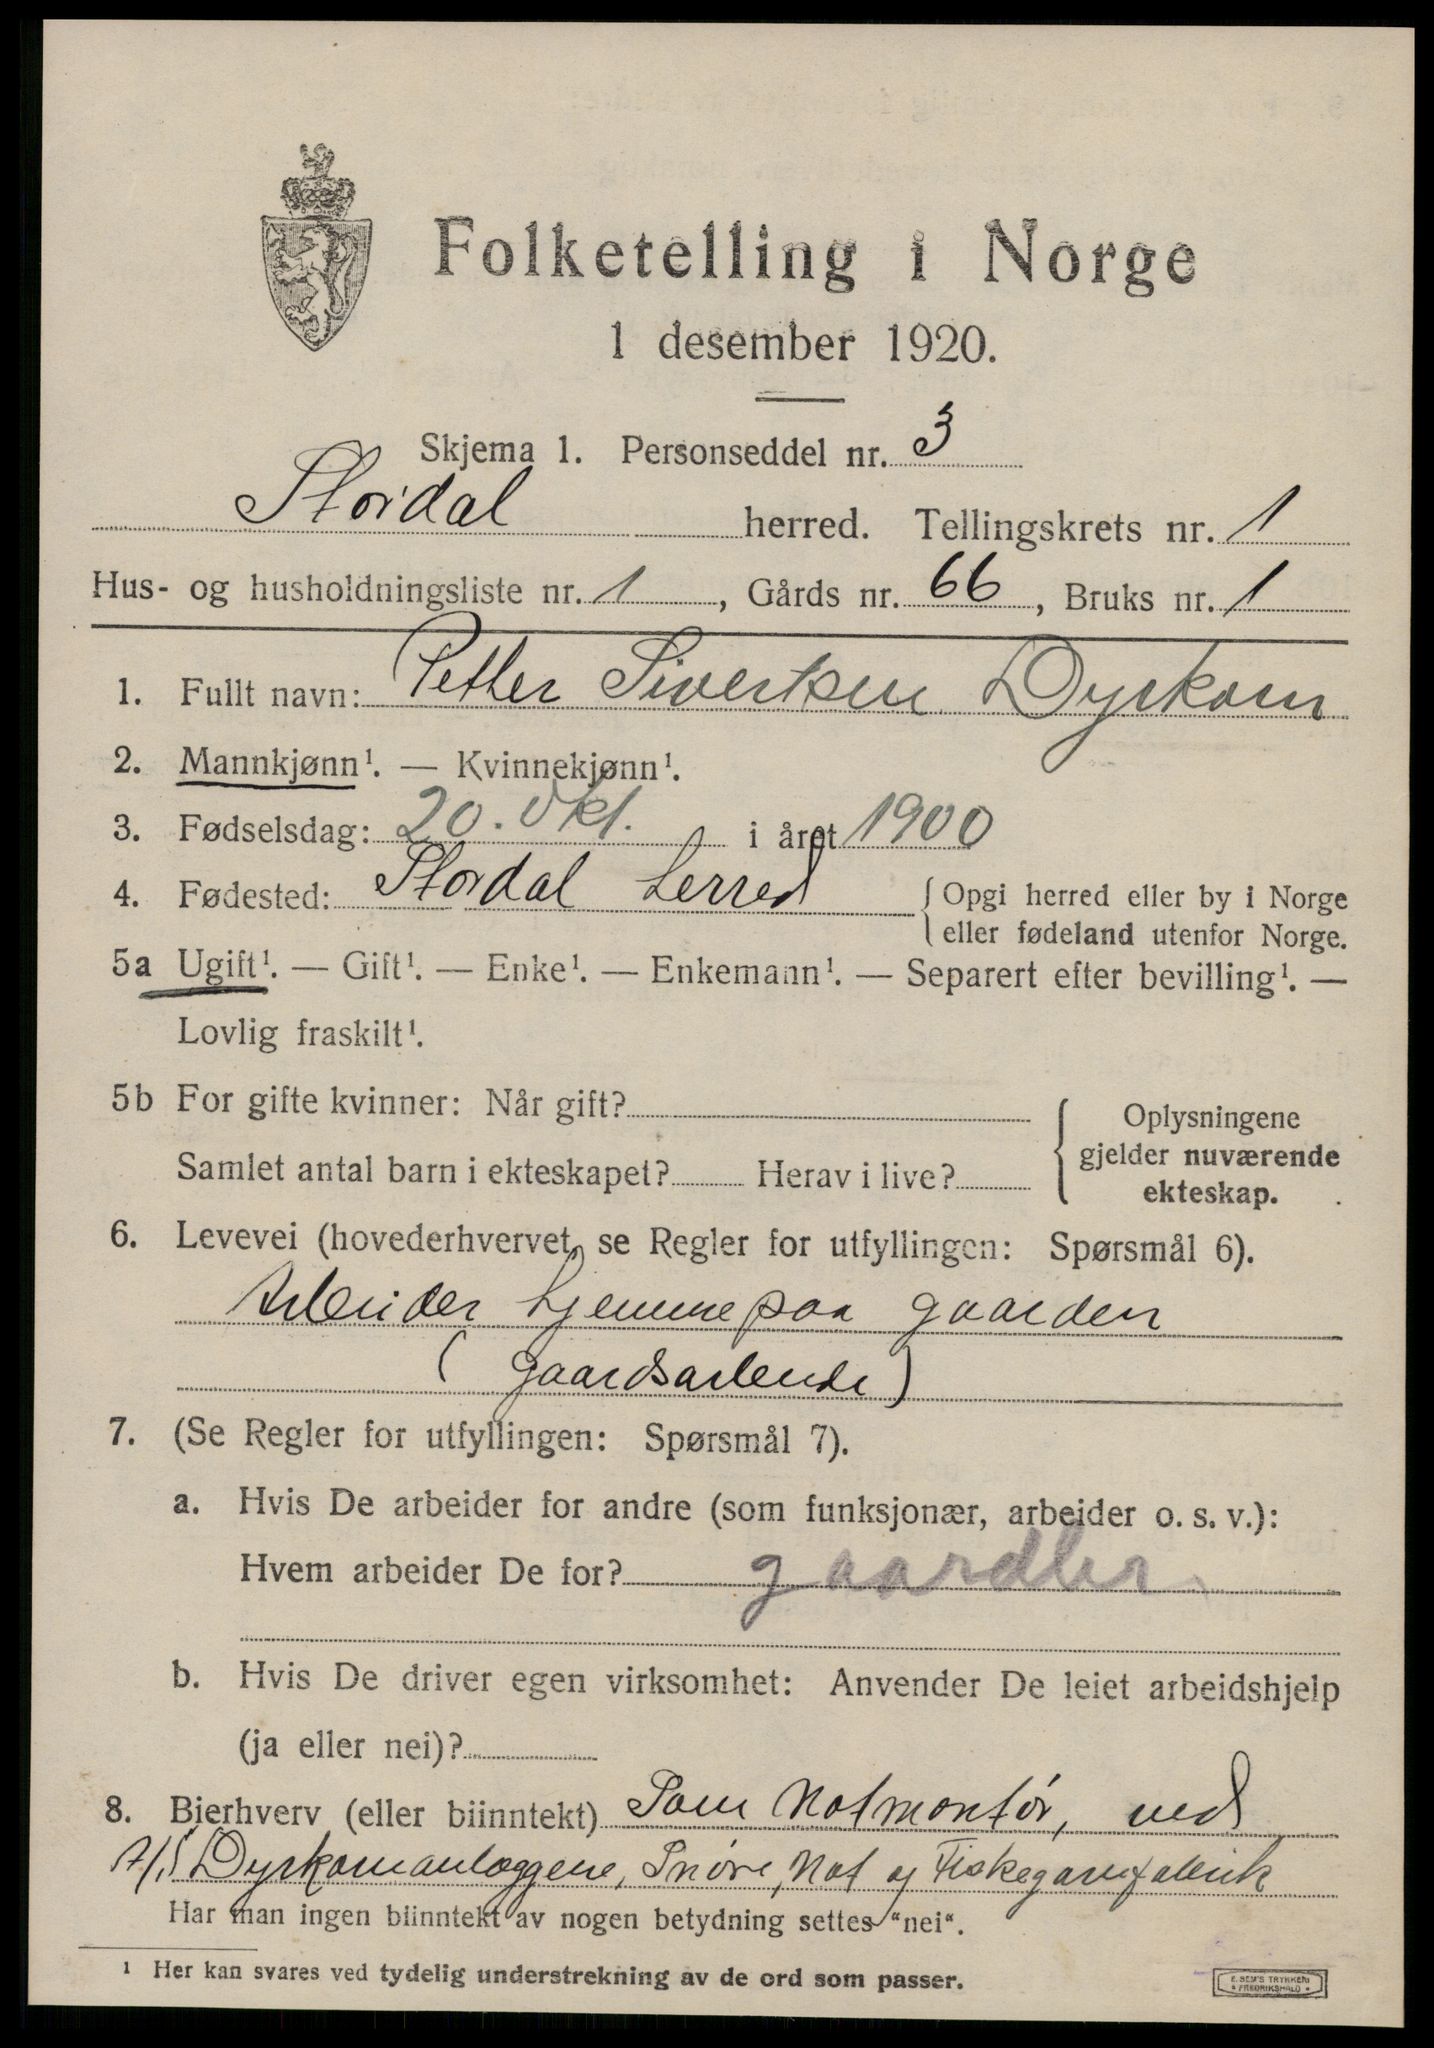 Folketelling i Norge
1 desember 1920.
Skjema 1. Personseddel nr. 3
Stordal herred. Tellingskrets nr. 1
Hus- og husholdningsliste nr. 1, Gårds nr. 66, Bruks nr. 1
1. Fullt navn: Petter Sivertsen Dyrkorn
2. Mannkjønn¹. — Kvinnekjønn¹.
3. Fødselsdag: 20. Okt. i året 1900
4. Fødested: Stordal herred { Opgi herred eller by i Norge
eller fødeland utenfor Norge.
5a Ugift¹. — Gift¹. — Enke¹. — Enkemann¹. — Separert efter bevilling¹. —
Lovlig fraskilt¹.
5b For gifte kvinner: Når gift?
Samlet antal barn i ekteskapet? Herav i live?
Oplysningene
gjelder nuværende
ekteskap.
6. Levevei (hovederhvervet, se Regler for utfyllingen: Spørsmål 6).
Arbeider hjemme paa gaarden
(gaardsarbeide)
7. (Se Regler for utfyllingen: Spørsmål 7).
a. Hvis De arbeider for andre (som funksjonær, arbeider o. s. v.):
Hvem arbeider De for? gaardbr.
b. Hvis De driver egen virksomhet: Anvender De leiet arbeidshjelp
(ja eller nei)?
8. Bierhverv (eller biinntekt) Som Notmontör, ved
A/S Dyrkornanlæggene, Snöre, Not og Fiskegarnfabrik
Har man ingen biinntekt av nogen betydning settes "nei".
¹ Her kan svares ved tydelig understrekning av de ord som passer.
E. SEM'S TRYKKERI
FREDRIKSHALD